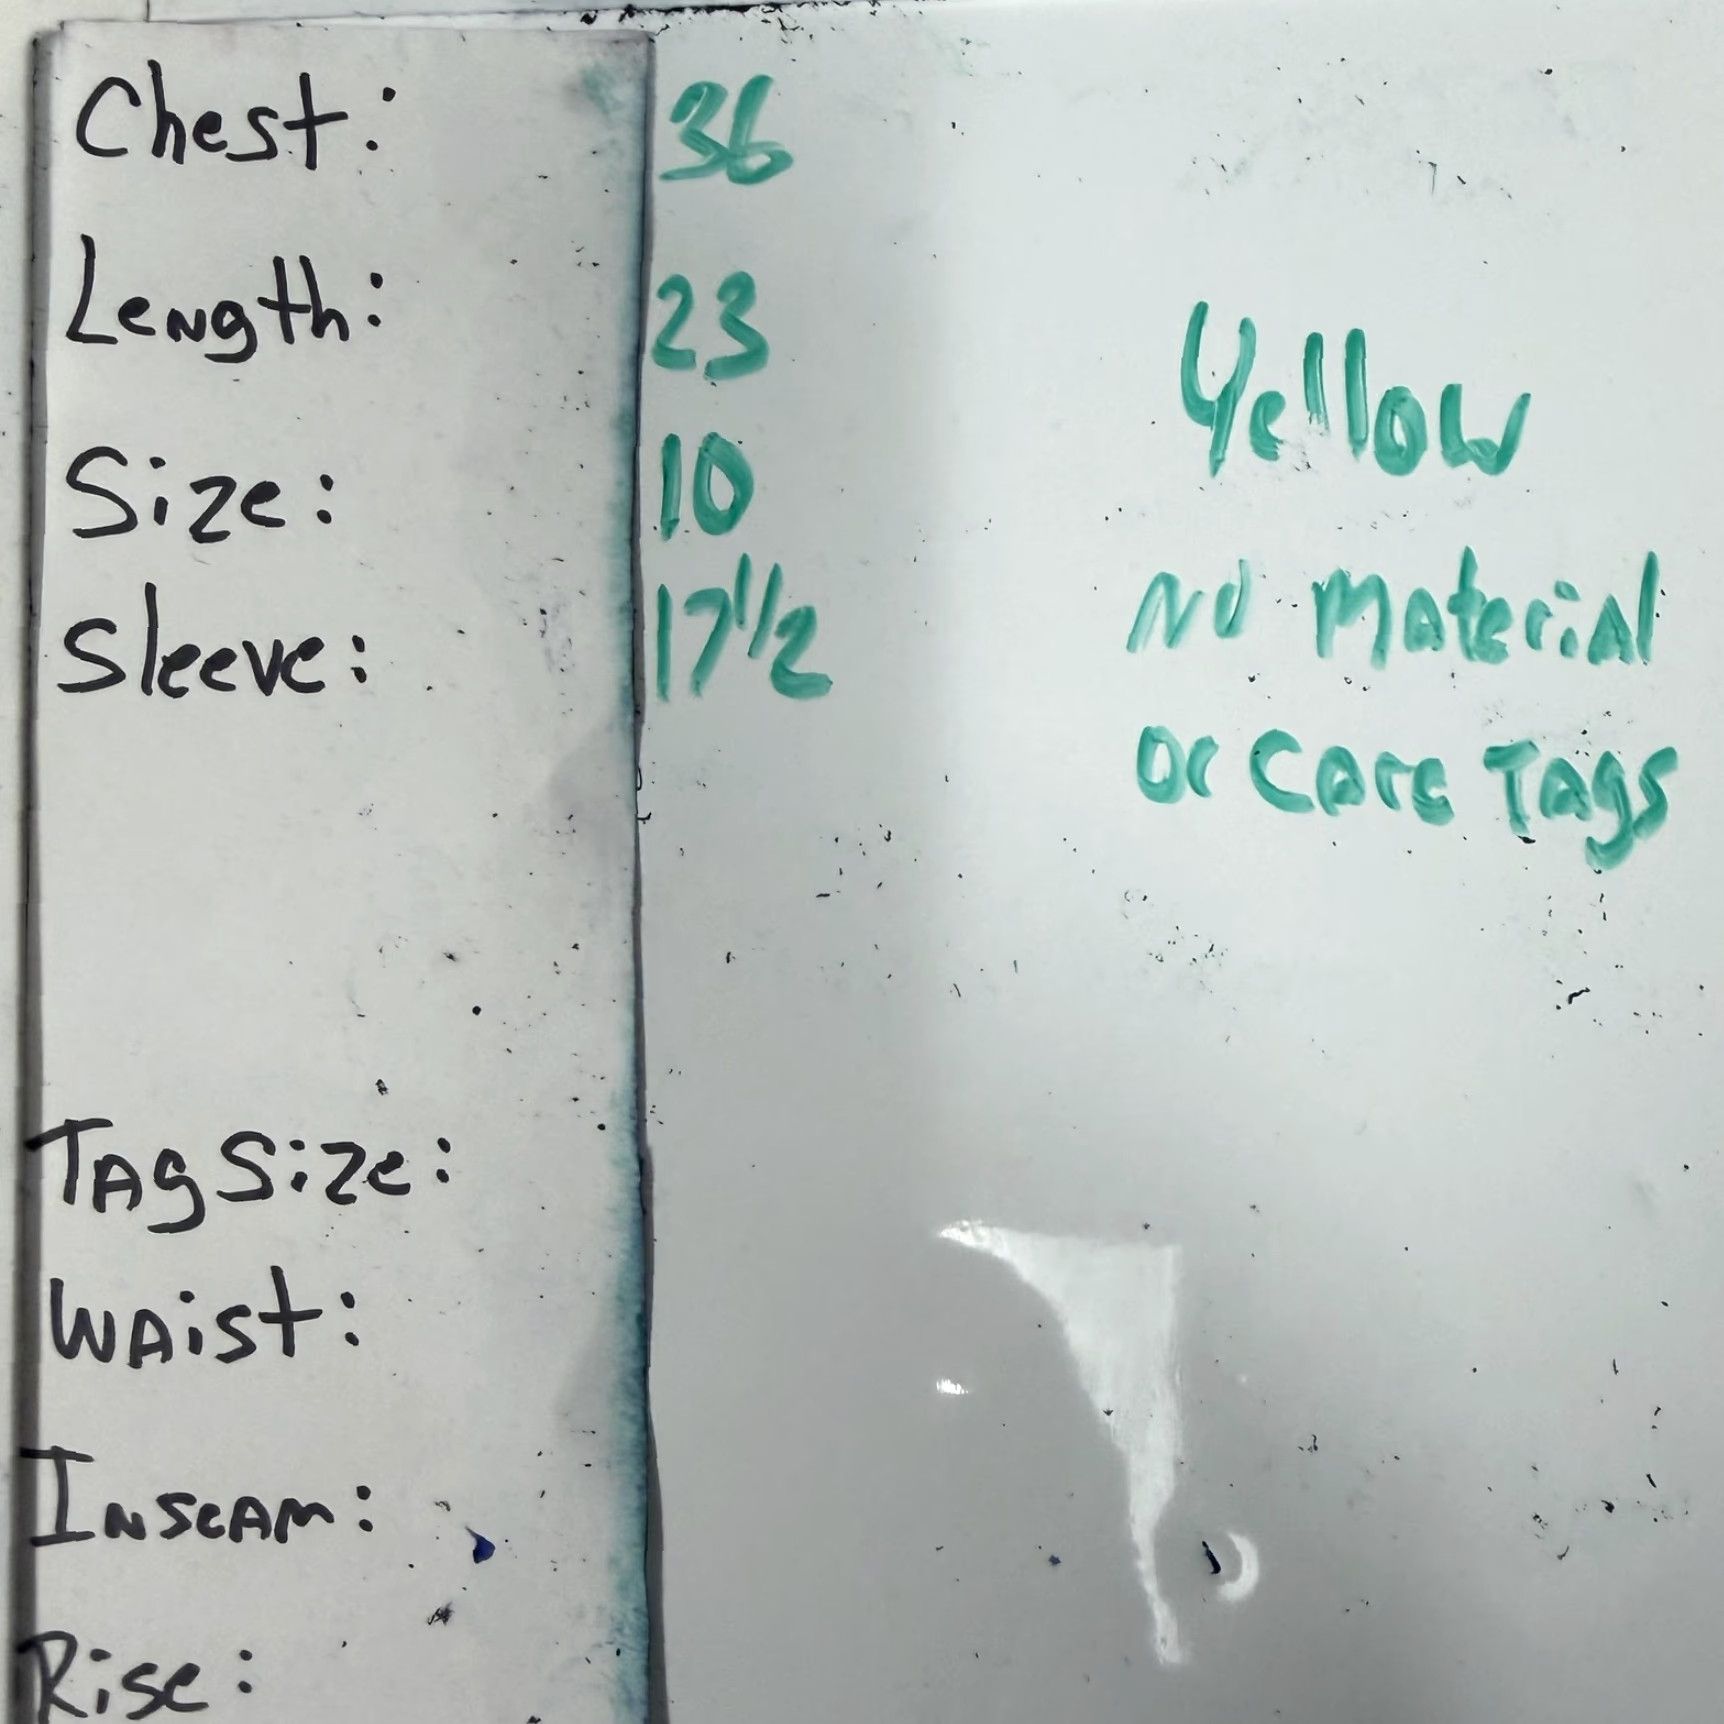 Chest: 36
Length: 23
Size: 10
Sleeve: 17 1/2
Yellow
No Material
or Care Tags
Tag Size:
Waist:
Inseam:
Rise: